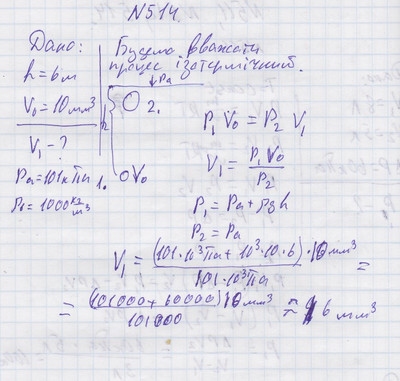 N514
Дано:
h = 6м
V₀ = 10мм³
V₁ - ?
Pa = 101кПа
ρв = 1000 кг/м³
Будемо вважати
процес ізотермічний.
↓Pa
h
2.
1.
V₀
P₁ V₀ = P₂ V₁
V₁ = P₁ V₀ / P₂
P₁ = Pa + ρgh
P₂ = Pa
V₁ = (101·10³Па + 10³·10·6)·10мм³ / 101·10³Па =
= (101000 + 60000)10мм³ / 101000 ≈ 16мм³